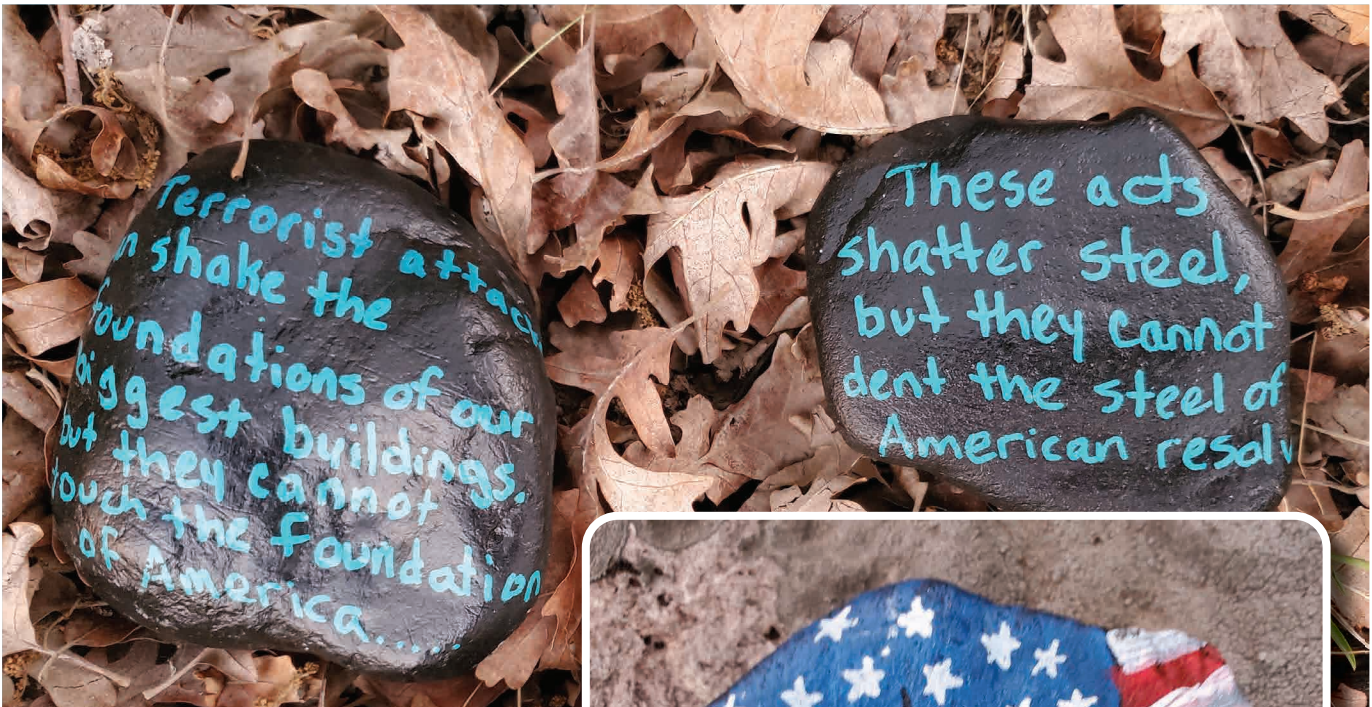 Terrorist attack
n shake the
foundations of our
biggest buildings.
but they cannot
touch the foundation
of America.....
These acts
shatter steel,
but they cannot
dent the steel of
American resolv